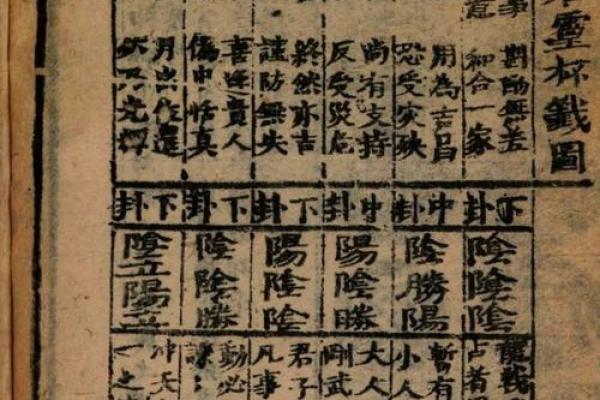 靈杯籤圖
事
斟酌無差
意
和合一家
用為吉昌
恐受灾殃
尚有支持
反受災危
終然亦吉
謹防無失
喜逢貴人
偽中恬真
月出
光輝
下卦
中卦
中卦
下卦
下卦
下卦
陰陰陰
陰勝陽
陽陰勝
陽陰陰
陰陰勝
陰立陽立
龍戰
占者
暫有
小人
大人
剛武
君子
凡事
動必
冲天
一之